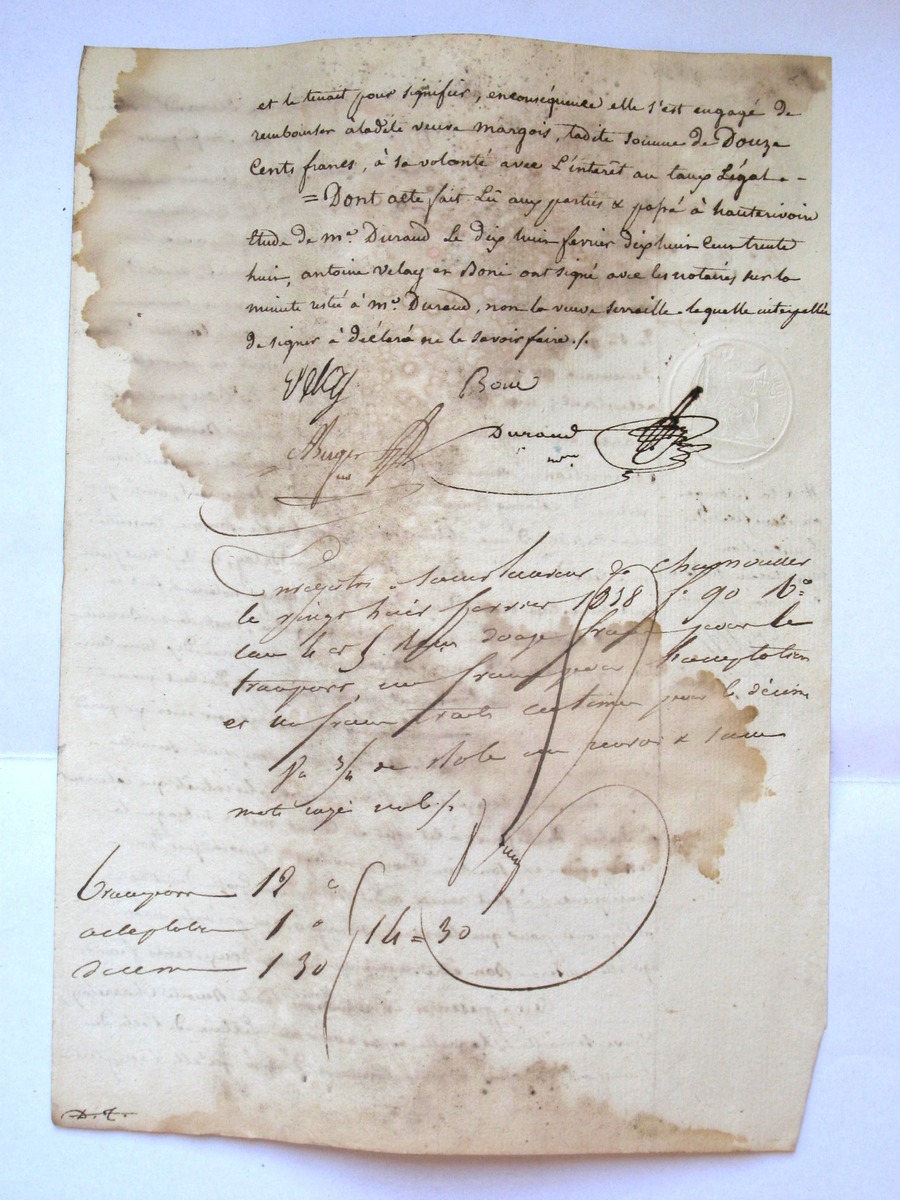 et le tenait pour signifié, enconséquence elle s'est engagé de
rembourser à ladite veuve margois, ladite somme de Douze
Cents francs, à sa volonté avec L'interêt au taux Légal . -
= Dont acte fait Lu aux parties & passé à hauterivoire
Etude de me. Durand Le dix huit fevrier dixhuit Cent trente
huit, antoine velay et Bonié ont signé avec les notaires sur la
minute resté à me. Durand, non la veuve laquelle interpellée
de signer à déclaré ne le savoir faire ./.
Velay Bonié
Durand
nre
Enregistré a Saint Laurent de Chamousset
le vingt huit fevrier 1838 fo. 90 Vo:
Case 4 et 5 Reçu douze francs pour le
transport, un franc pour l'acceptation
et un franc trente centimes pour le décime
mots rayé nuls ./.
transport 12 "
acceptation 1 "
décime 1 30
14 = 30
D. t.